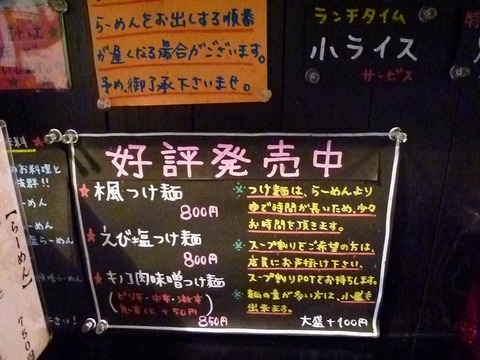 らーめんをお出しする順番
が遅くなる場合がございます。
予め、御了承下さいませ。
ランチタイム
小ライス
サービス
好評発売中
★楓つけ麺
800円
★えび塩つけ麺
800円
★キノコ肉味噌つけ麺
850円
※つけ麺は、らーめんより
ゆで時間が長いため、少々
お時間を頂きます。
※スープ割りをご希望の方は、
店員にお声掛け下さい。
スープ割りPOTでお持ちします。
※麺の量が多い方は、小盛も
出来ます。
大盛+100円
【らーめん】
750円